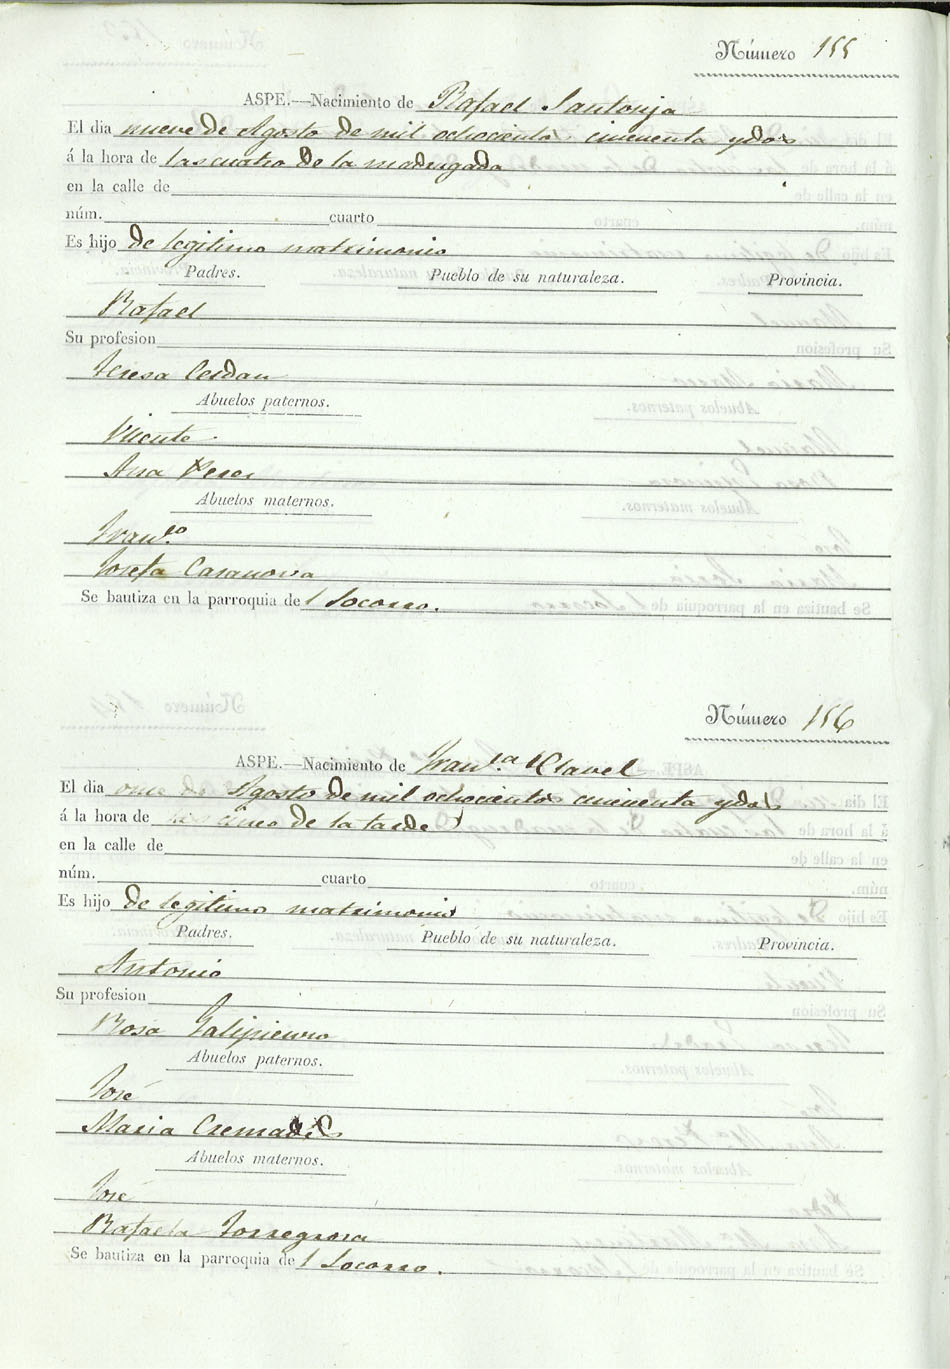 Número 155
ASPE.—Nacimiento de Rafael Santonja
El dia nueve de Agosto de mil ochocientos cincuenta y dos
á la hora de las cuatro de la madrugada
en la calle de
núm. cuarto
Es hijo de legitimo matrimonio
Padres. Pueblo de su naturaleza. Provincia.
Rafael
Su profesion
Teresa Cerdan
Abuelos paternos.
Vicente
Ana Perez
Abuelos maternos.
Fran.co
Josefa Casanova
Se bautiza en la parroquia del Socorro.
Número 156
ASPE.—Nacimiento de Fran.ca Clavel
El dia once de Agosto de mil ochocientos cincuenta y dos
á la hora de las cinco de la tarde
en la calle de
núm. cuarto
Es hijo de legitimo matrimonio
Padres. Pueblo de su naturaleza. Provincia.
Antonio
Su profesion
Rosa Galipienso
Abuelos paternos.
José
Maria Cremades
Abuelos maternos.
José
Rafaela Torregrosa
Se bautiza en la parroquia del Socorro.